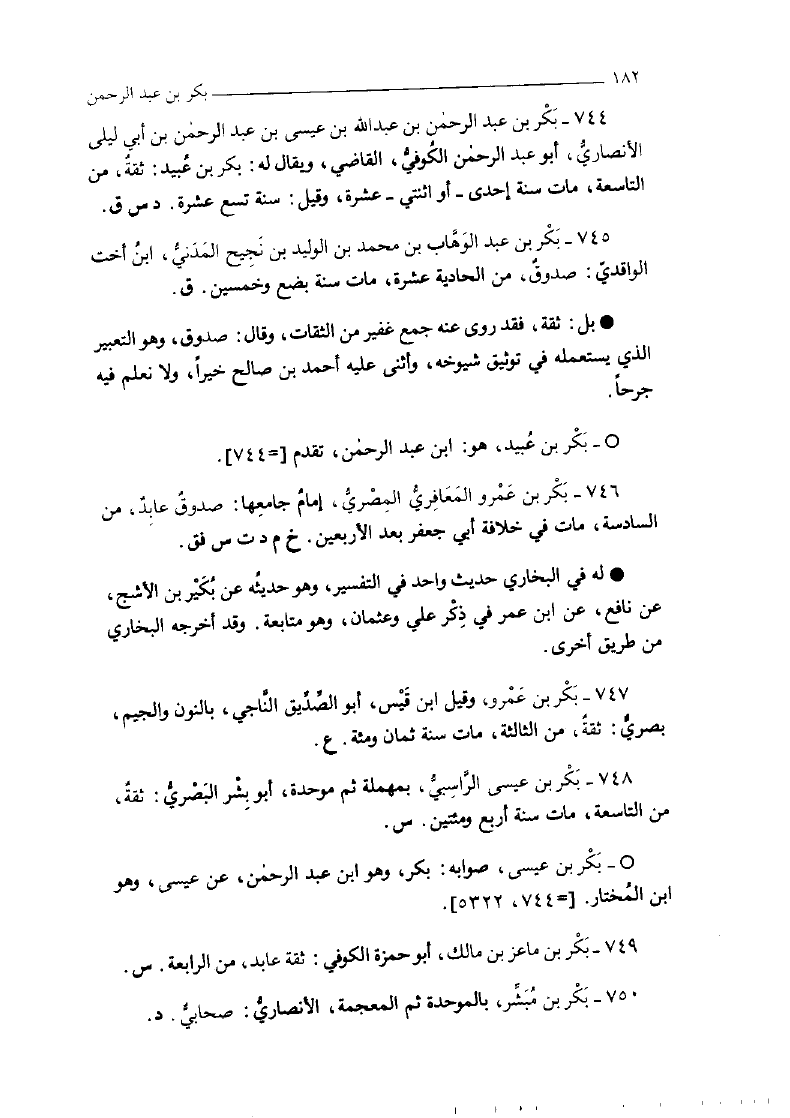 ١٨٢ ــــــــــــــــــــــــــــــــــــــــ بكر بن عبد الرحمن
٧٤٤ ـ بَكْر بن عبد الرحمٰن بن عبدالله بن عيسى بن عبد الرحمٰن بن أبي ليلى
الأنصاريُّ، أبو عبد الرحمٰن الكُوفيُّ، القاضي، ويقال له: بكر بن عُبيد: ثقةٌ، من
التاسعة، مات سنة إحدى ـ أو اثنتي ـ عشرة، وقيل: سنة تسع عشرة. د س ق.
٧٤٥ ـ بَكْر بن عبد الوَهَّاب بن محمد بن الوليد بن نَجِيح المَدَنيُّ، ابنُ أخت
الواقديّ: صدوقٌ، من الحادية عشرة، مات سنة بضع وخمسين. ق.
● بل: ثقة، فقد روى عنه جمع غفير من الثقات، وقال: صدوق، وهو التعبير
الذي يستعمله في توثيق شيوخه، وأثنى عليه أحمد بن صالح خيراً، ولا نعلم فيه
جرحاً.
○ ـ بَكْر بن عُبيد، هو: ابن عبد الرحمٰن، تقدم [=٧٤٤].
٧٤٦ ـ بَكْر بن عَمْرو المَعَافِريُّ المِصْريُّ، إمامُ جامعِها: صدوقٌ عابِدٌ، من
السادسة، مات في خلافة أبي جعفر بعد الأربعين. خ م د ت س فق.
● له في البخاري حديث واحد في التفسير، وهو حديثُه عن بُكَيْر بن الأشج،
عن نافع، عن ابن عمر في ذِكْر علي وعثمان، وهو متابعة. وقد أخرجه البخاري
من طريق أخرى.
٧٤٧ ـ بَكْر بن عَمْرو، وقيل ابن قَيْس، أبو الصِّدِّيق النَّاجي، بالنون والجيم،
بصريٌّ: ثقةٌ، من الثالثة، مات سنة ثمان ومئة. ع.
٧٤٨ ـ بَكْر بن عيسى الرَّاسِبيُّ، بمهملة ثم موحدة، أبو بِشْر البَصْريُّ: ثقةٌ،
من التاسعة، مات سنة أربع ومئتين. س.
○ ـ بَكْر بن عيسى، صوابه: بكر، وهو ابن عبد الرحمٰن، عن عيسى، وهو
ابن المُختار. [=٧٤٤، ٥٣٢٢].
٧٤٩ ـ بَكْر بن ماعز بن مالك، أبو حمزة الكوفي: ثقة عابد، من الرابعة. س.
٧٥٠ ـ بَكْر بن مُبَشِّر، بالموحدة ثم المعجمة، الأنصاريُّ: صحابيٌّ. د.